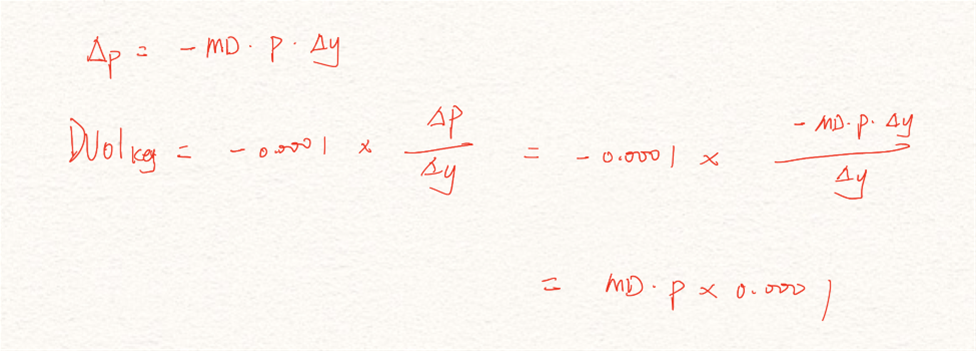 Δp = - MD · P · Δy
DV01key = - 0.0001 × ΔP/Δy = - 0.0001 × - MD · P · Δy/Δy
= MD · P × 0.0001